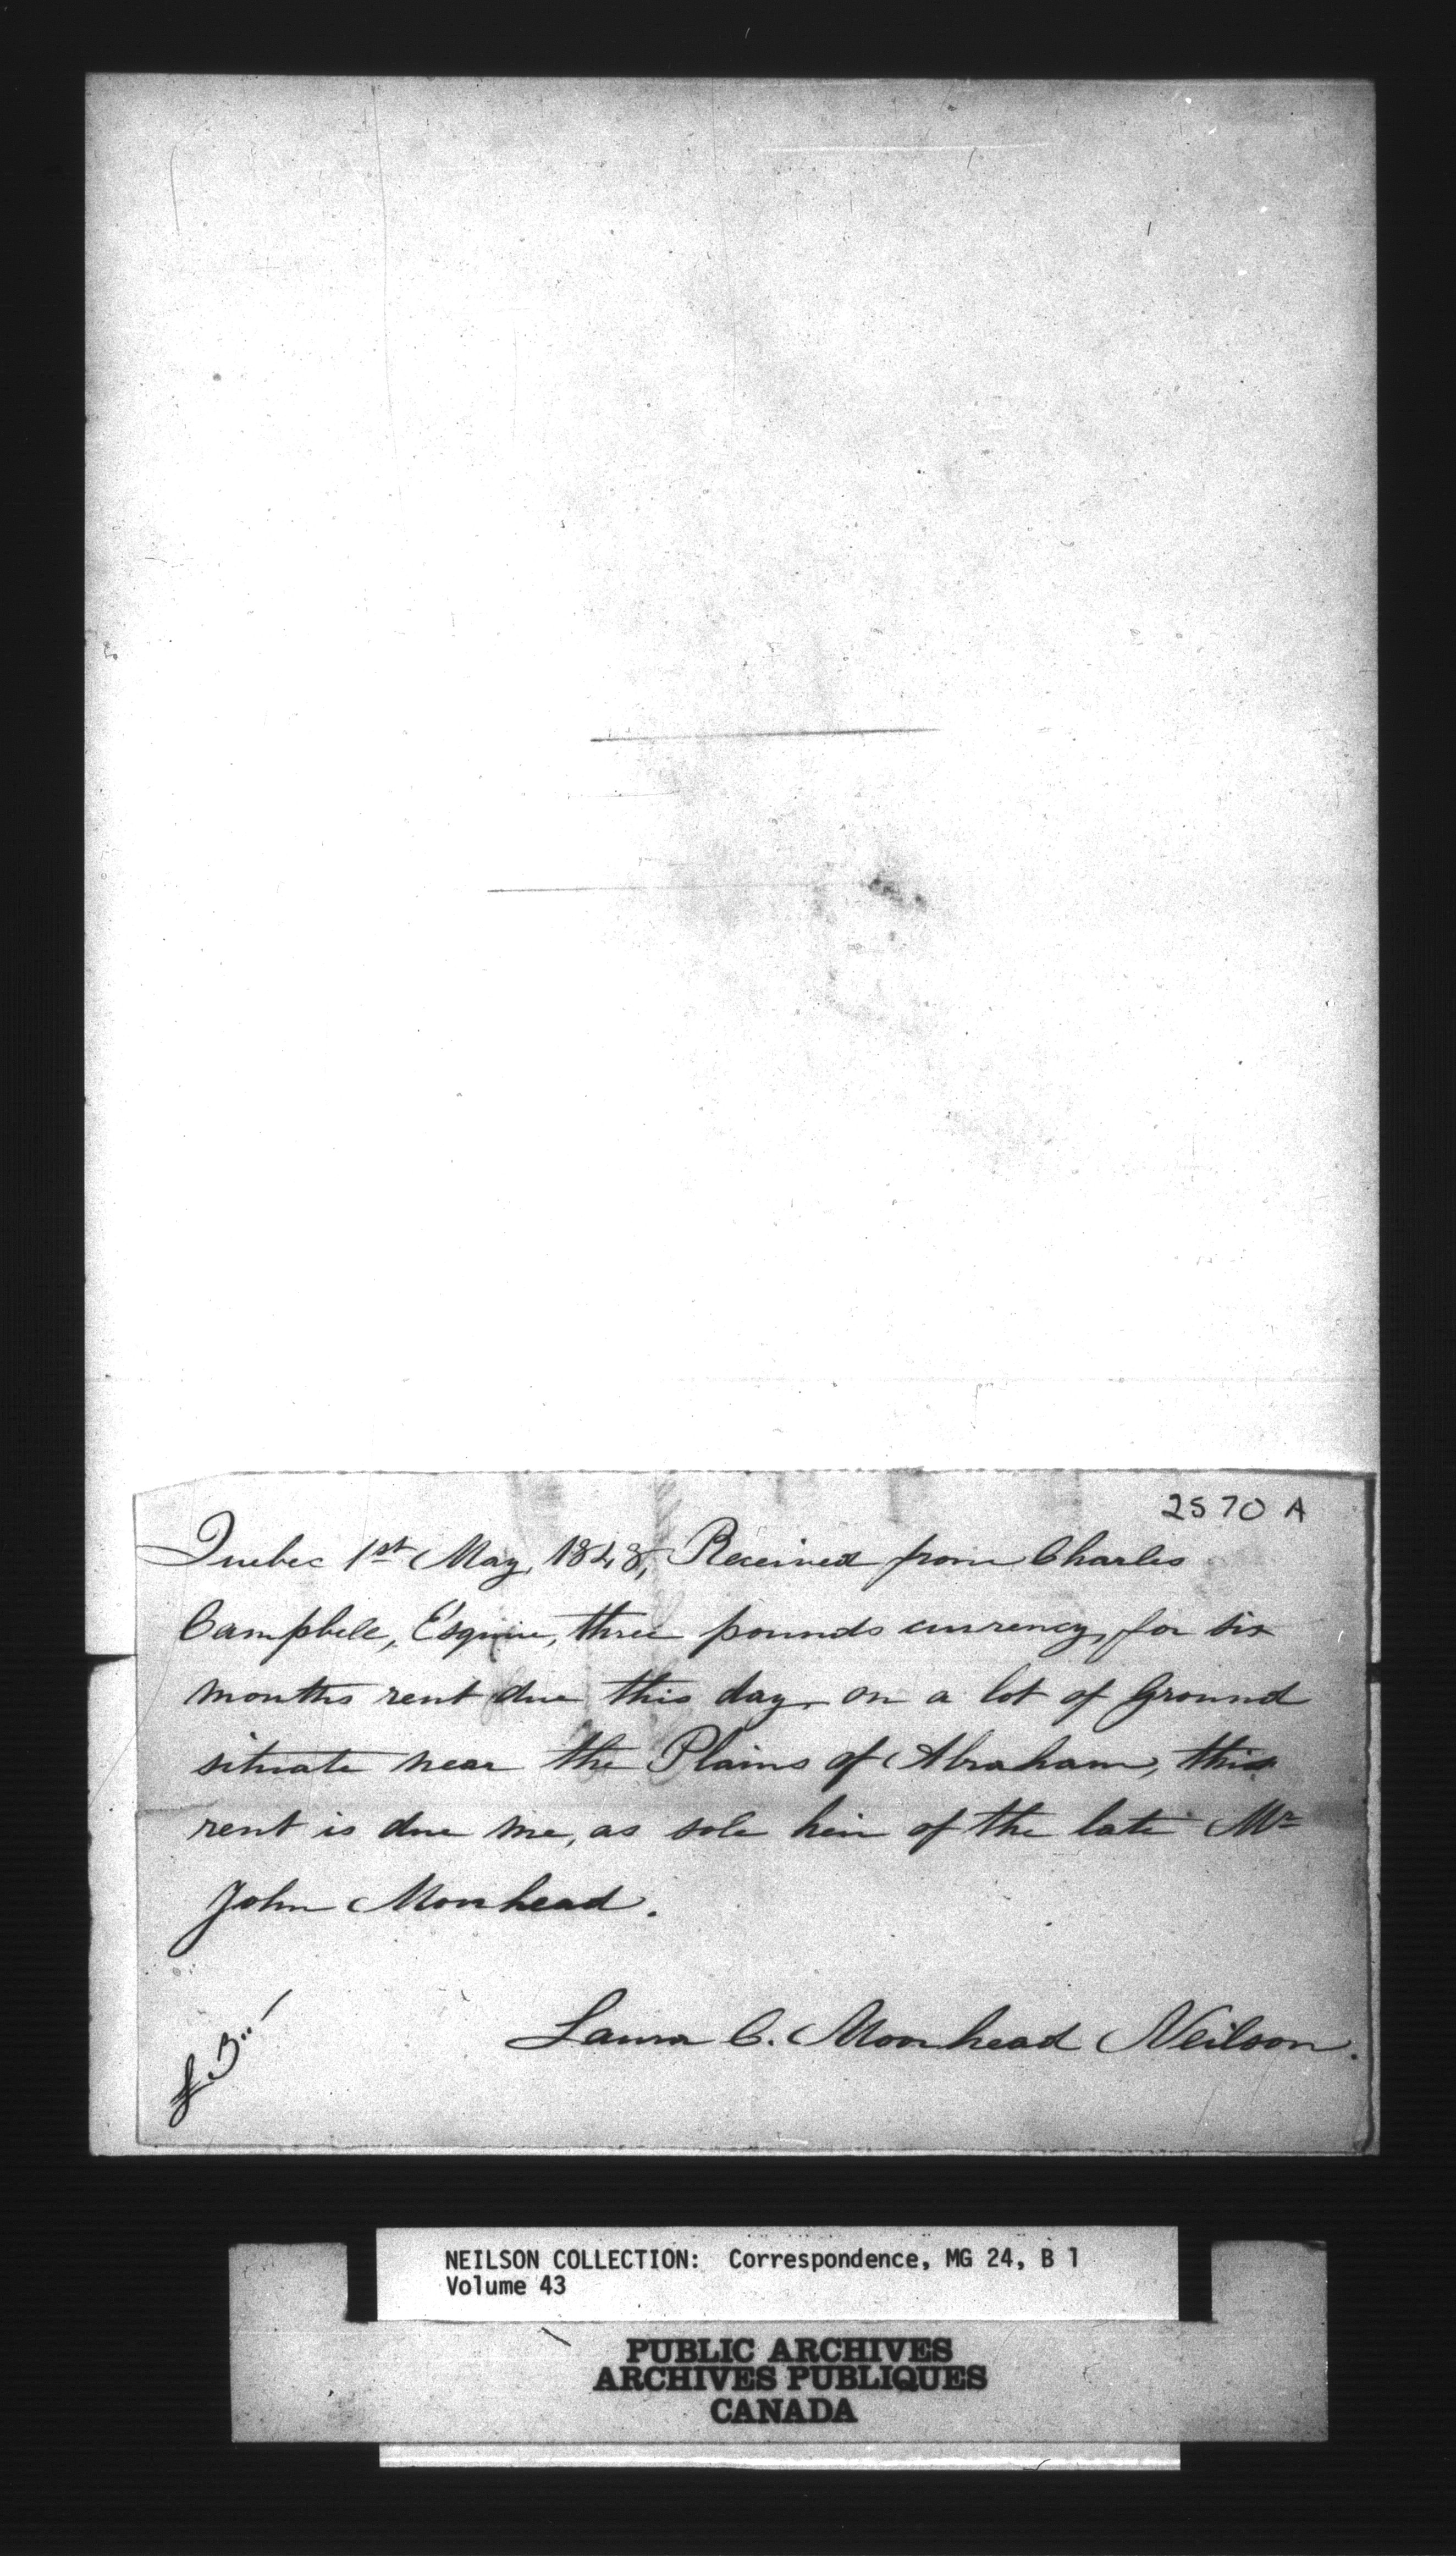 2570 A
Quebec 1st May, 1848, Received from Charles
Campbell, Esquire, three pounds currency, for six
months rent due this day, on a lot of Ground
situate near the Plains of Abraham, this
rent is due me, as sole heir of the late Mr
John Moorhead.
Laura C. Moorhead Neilson.
£3
NEILSON COLLECTION: Correspondence, MG 24, B 1
Volume 43
PUBLIC ARCHIVES
ARCHIVES PUBLIQUES
CANADA